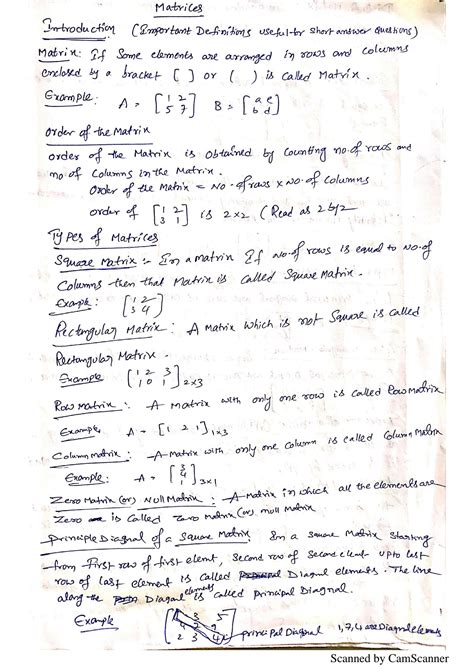 Matrices
Introduction (Important Definitions useful for short answer Questions)
Matrix: If Some elements are arranged in rows and columns
enclosed by a bracket [ ] or ( ) is called Matrix.
Example: A = [1 2 5 7] B = [a c b d]
order of the Matrix
order of the Matrix is obtained by counting no. of rows and
no of Columns in the Matrix.
Order of the Matrix = No. of rows x No. of Columns
order of [1 2 3 1] is 2x2 (Read as 2 by 2
Types of Matrices
Square Matrix :- In a matrix If No. of rows is equal to No. of
Columns then that Matrix is called Square Matrix.
Example: [1 2 3 4]
Rectangular Matrix: A Matrix which is not Square is called
Rectangular Matrix.
Example [1 2 3 1 0 1] 2x3
Row Matrix: A matrix with only one row is called Row Matrix
Example A = [1 2 1] 1x3
Column matrix: A Matrix with only one column is called Column Matrix
Example: A = [3 4 1] 3x1
Zero Matrix (or) Null Matrix: A Matrix in which all the elements are
Zero is Called Zero Matrix (or) null Matrix
principle Diagnal of a Square Matrix In a Square Matrix Starting
from First row of first elemt, Second row of Second elemt upto last
row of last element is called Diagnal elements. The line
along the Diagnal elements is called principal Diagnal.
Example 3 5 2 3 4 principal Diagonal 1,7,4 are Diagnol elements
Scanned by CamScanner